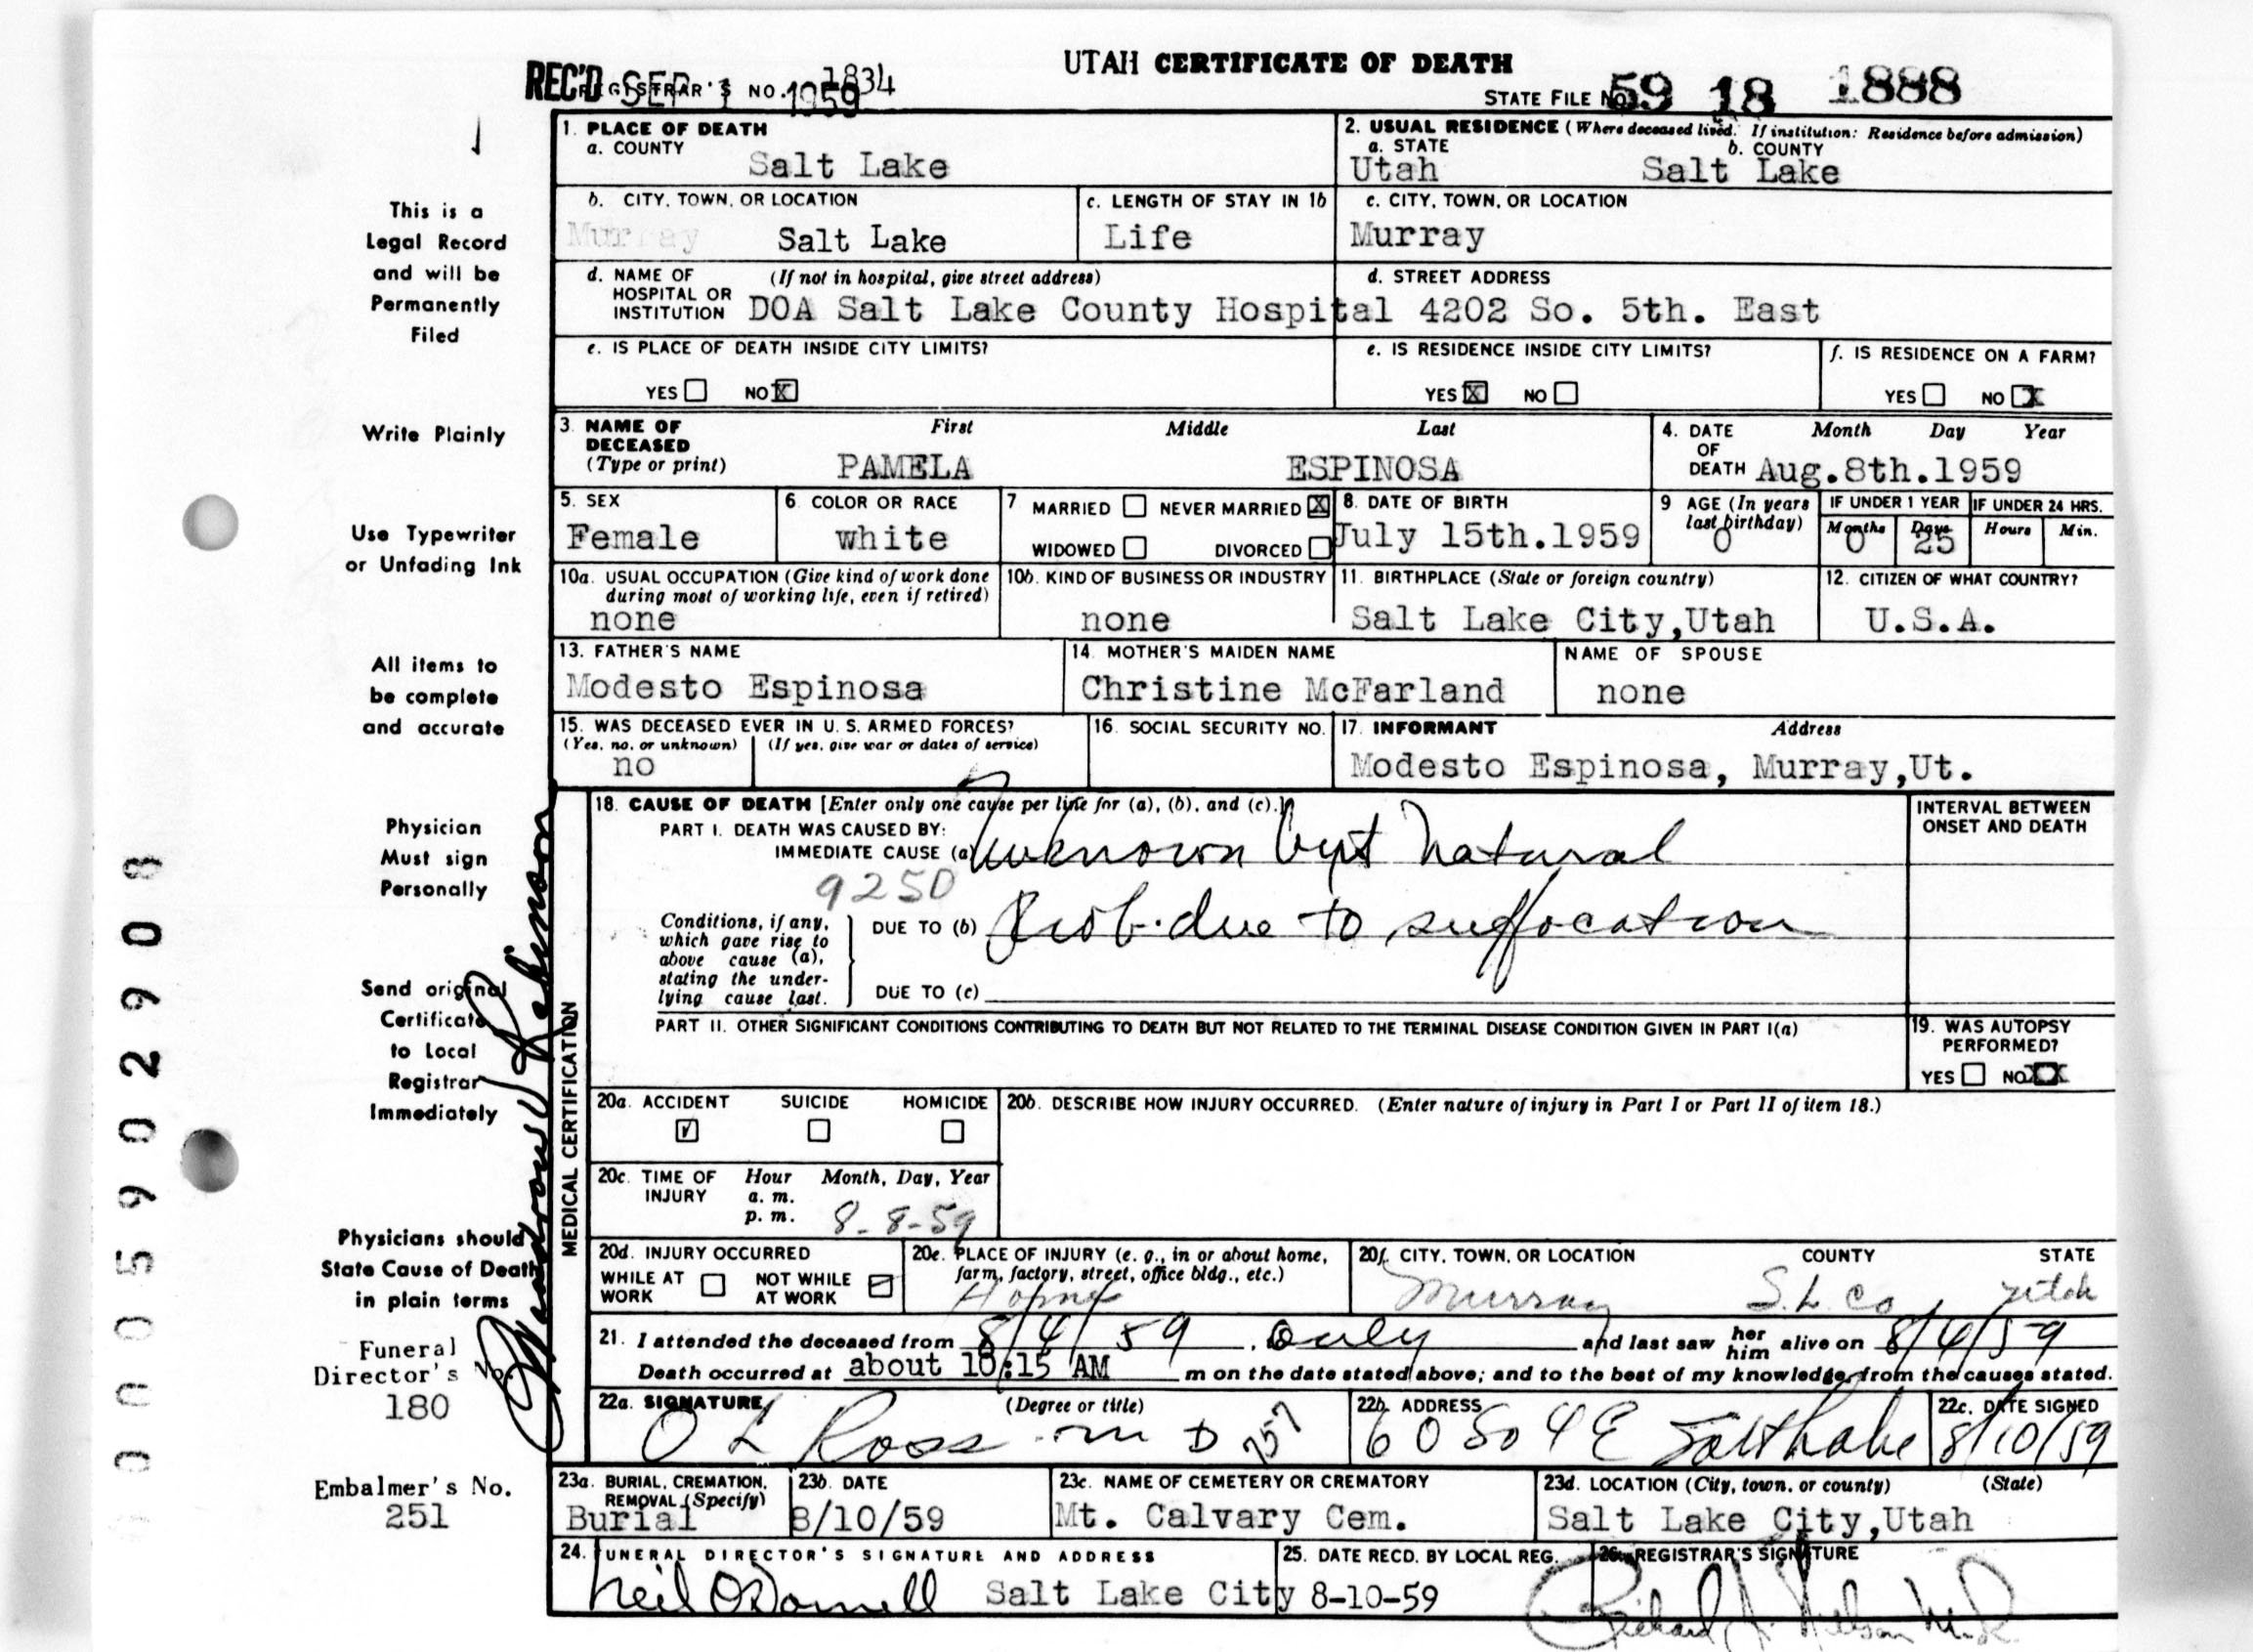 UTAH CERTIFICATE OF DEATH
REC'D SEP 1 1959
REGISTRAR'S NO. 1834
STATE FILE NO. 59 18 1888
This is a
Legal Record
and will be
Permanently
Filed
Write Plainly
Use Typewriter
or Unfading Ink
All items to
be complete
and accurate
Physician
Must sign
Personally
Send original
Certificate
to Local
Registrar
Immediately
Physicians should
State Cause of Death
in plain terms
Funeral
Director's No.
180
Embalmer's No.
251
0005902908
1. PLACE OF DEATH
a. COUNTY
Salt Lake
2. USUAL RESIDENCE (Where deceased lived. If institution: Residence before admission)
a. STATE b. COUNTY
Utah Salt Lake
b. CITY, TOWN, OR LOCATION
Murray Salt Lake
c. LENGTH OF STAY IN 1b
Life
c. CITY, TOWN, OR LOCATION
Murray
d. NAME OF HOSPITAL OR INSTITUTION (If not in hospital, give street address)
DOA Salt Lake County Hospital
d. STREET ADDRESS
4202 So. 5th. East
e. IS PLACE OF DEATH INSIDE CITY LIMITS?
YES NO X
e. IS RESIDENCE INSIDE CITY LIMITS?
YES X NO
f. IS RESIDENCE ON A FARM?
YES NO X
3. NAME OF DECEASED (Type or print)
First Middle Last
PAMELA ESPINOSA
4. DATE OF DEATH Month Day Year
Aug.8th.1959
5. SEX
Female
6. COLOR OR RACE
white
7 MARRIED NEVER MARRIED X
WIDOWED DIVORCED
8. DATE OF BIRTH
July 15th.1959
9 AGE (In years last birthday)
0
IF UNDER 1 YEAR
Months Days
0 25
IF UNDER 24 HRS.
Hours Min.
10a. USUAL OCCUPATION (Give kind of work done during most of working life, even if retired)
none
10b. KIND OF BUSINESS OR INDUSTRY
none
11. BIRTHPLACE (State or foreign country)
Salt Lake City,Utah
12. CITIZEN OF WHAT COUNTRY?
U.S.A.
13. FATHER'S NAME
Modesto Espinosa
14. MOTHER'S MAIDEN NAME
Christine McFarland
NAME OF SPOUSE
none
15. WAS DECEASED EVER IN U. S. ARMED FORCES?
(Yes, no, or unknown) (If yes, give war or dates of service)
no
16. SOCIAL SECURITY NO.
17. INFORMANT Address
Modesto Espinosa, Murray,Ut.
MEDICAL CERTIFICATION
18. CAUSE OF DEATH [Enter only one cause per line for (a), (b), and (c).]
PART I. DEATH WAS CAUSED BY:
IMMEDIATE CAUSE (a) Unknown but Natural
9250
Conditions, if any, which gave rise to above cause (a), stating the underlying cause last.
DUE TO (b) Prob. due to suffocation
DUE TO (c)
INTERVAL BETWEEN ONSET AND DEATH
PART II. OTHER SIGNIFICANT CONDITIONS CONTRIBUTING TO DEATH BUT NOT RELATED TO THE TERMINAL DISEASE CONDITION GIVEN IN PART I(a)
19. WAS AUTOPSY PERFORMED?
YES NO XX
20a. ACCIDENT SUICIDE HOMICIDE
20b. DESCRIBE HOW INJURY OCCURRED. (Enter nature of injury in Part I or Part II of item 18.)
20c. TIME OF INJURY Hour Month, Day, Year
a. m.
p. m. 8-8-59
20d. INJURY OCCURRED
WHILE AT WORK NOT WHILE AT WORK
20e. PLACE OF INJURY (e. g., in or about home, farm, factory, street, office bldg., etc.)
Home
20f. CITY, TOWN, OR LOCATION COUNTY STATE
Murray S.L. Co, Utah
21. I attended the deceased from 8/4/59, Only and last saw her him alive on 8/4/59
Death occurred at about 10:15 AM m on the date stated above; and to the best of my knowledge, from the causes stated.
22a. SIGNATURE (Degree or title)
O L Ross M D 757
22b. ADDRESS
60 So 4 E Salt Lake
22c. DATE SIGNED
8/10/59
23a. BURIAL, CREMATION, REMOVAL (Specify)
Burial
23b. DATE
8/10/59
23c. NAME OF CEMETERY OR CREMATORY
Mt. Calvary Cem.
23d. LOCATION (City, town, or county) (State)
Salt Lake City,Utah
24. FUNERAL DIRECTOR'S SIGNATURE AND ADDRESS
Neil O'Donnell Salt Lake City
25. DATE RECD. BY LOCAL REG.
8-10-59
26. REGISTRAR'S SIGNATURE